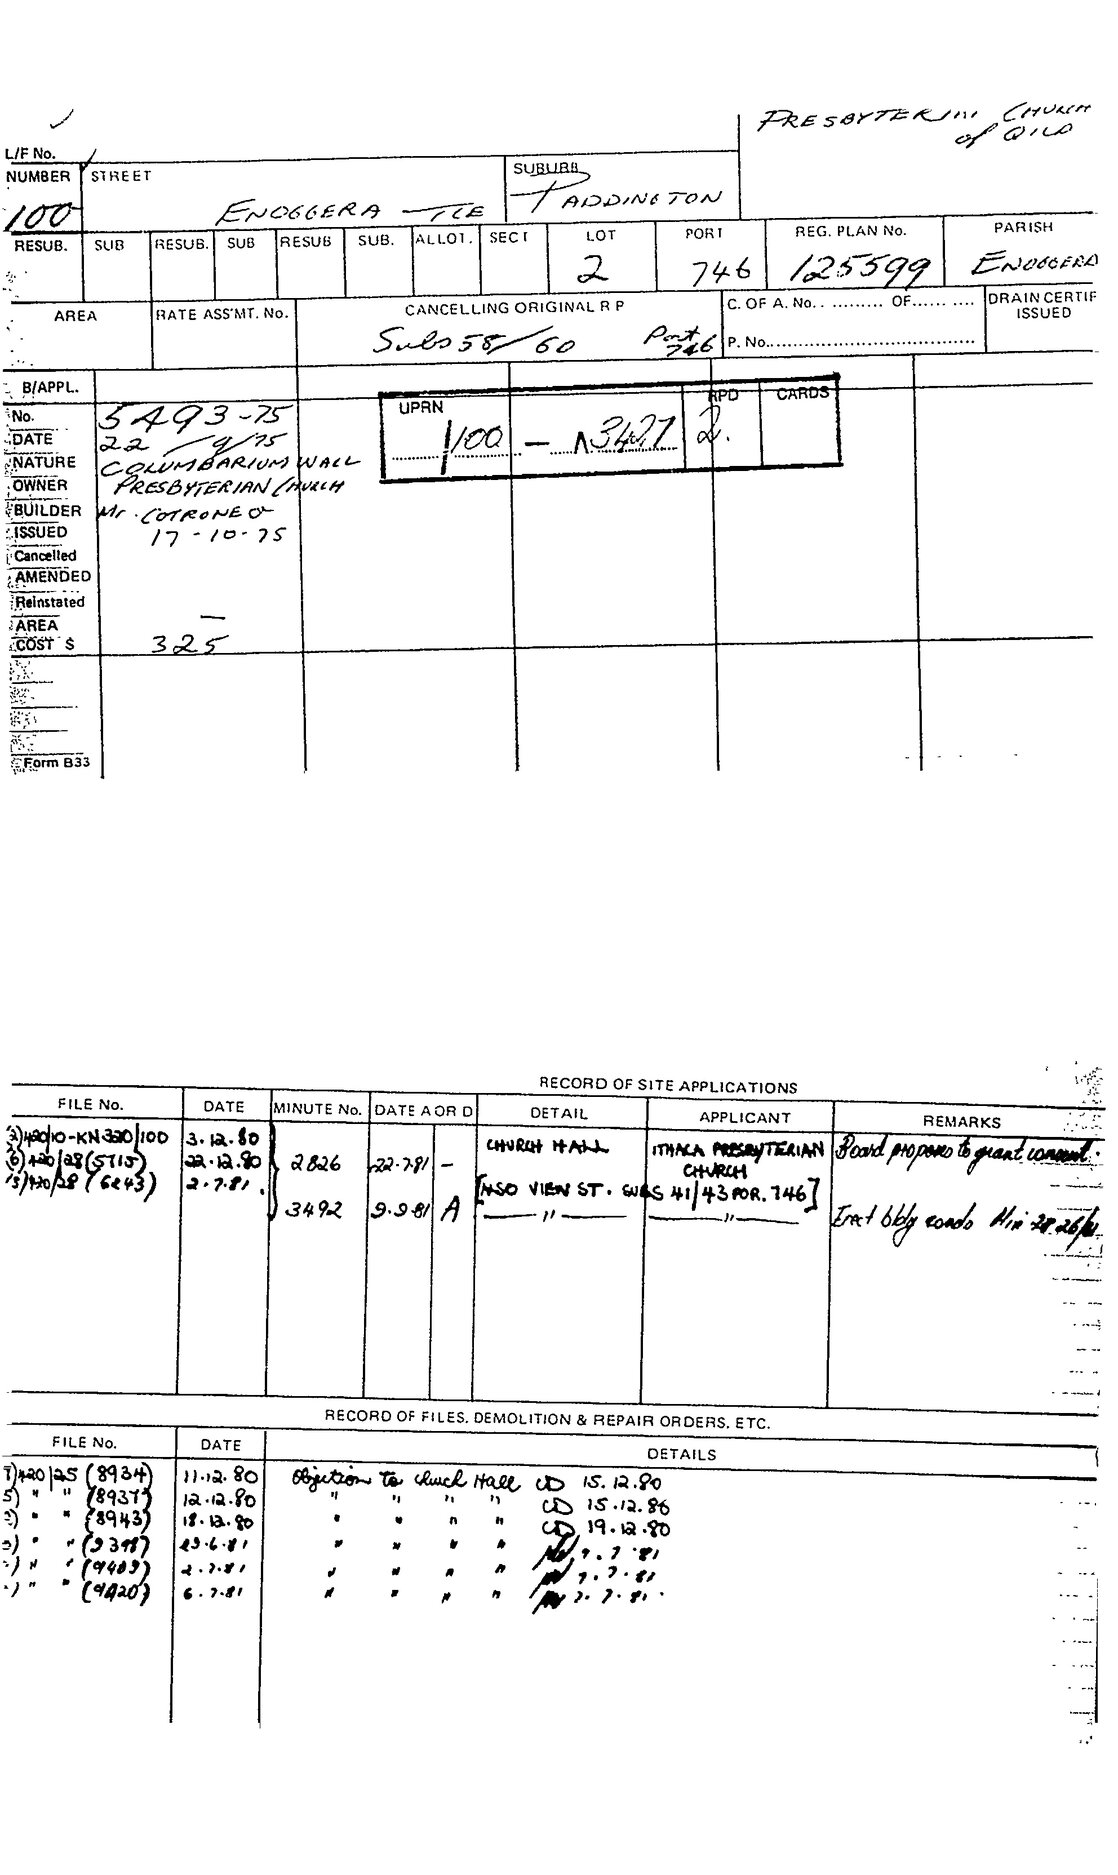 PRESBYTERIAN CHURCH
of QLD
L/F No.
NUMBER STREET SUBURB
100 ENOGGERA TCE PADDINGTON
RESUB. SUB RESUB. SUB RESUB SUB. ALLOT. SECT LOT PORT REG. PLAN No. PARISH
2 746 125599 ENOGGERA
AREA RATE ASS'MT. No. CANCELLING ORIGINAL R P C. OF A. No. OF DRAIN CERTIF
ISSUED
Subs 58/60 Port 746 P. No.
B/APPL.
UPRN RPD CARDS
100 - 3427 2.
No. 5493-75
DATE 22/9/75
NATURE COLUMBARIUM WALL
OWNER PRESBYTERIAN CHURCH
BUILDER Mr. COTRONEO
ISSUED 17-10-75
Cancelled
AMENDED
Reinstated
AREA —
COST $ 325
Form B33
RECORD OF SITE APPLICATIONS
FILE No. DATE MINUTE No. DATE A OR D DETAIL APPLICANT REMARKS
420/10-KN320/100 3.12.80 CHURCH HALL ITHACA PRESBYTERIAN Board proposes to grant consent.
420/28 (5715) 22.12.80 2826 22.7.81 - CHURCH
420/28 (6243) 2.7.81 [ALSO VIEW ST. SUBS 41/43 POR. 746]
3492 9.9.81 A — " — — " — Erect bldg conds Min 2826/81
RECORD OF FILES, DEMOLITION & REPAIR ORDERS, ETC.
FILE No. DATE DETAILS
420/25 (8934) 11.12.80 Objection to Church Hall CD 15.12.80
" " (8937) 12.12.80 " " " " CD 15.12.80
" " (8943) 18.12.80 " " " " CD 19.12.80
" " (9398) 29.6.81 " " " " 7.7.81
" " (9409) 2.7.81 " " " " 7.7.81
" " (9420) 6.7.81 " " " " 7.7.81